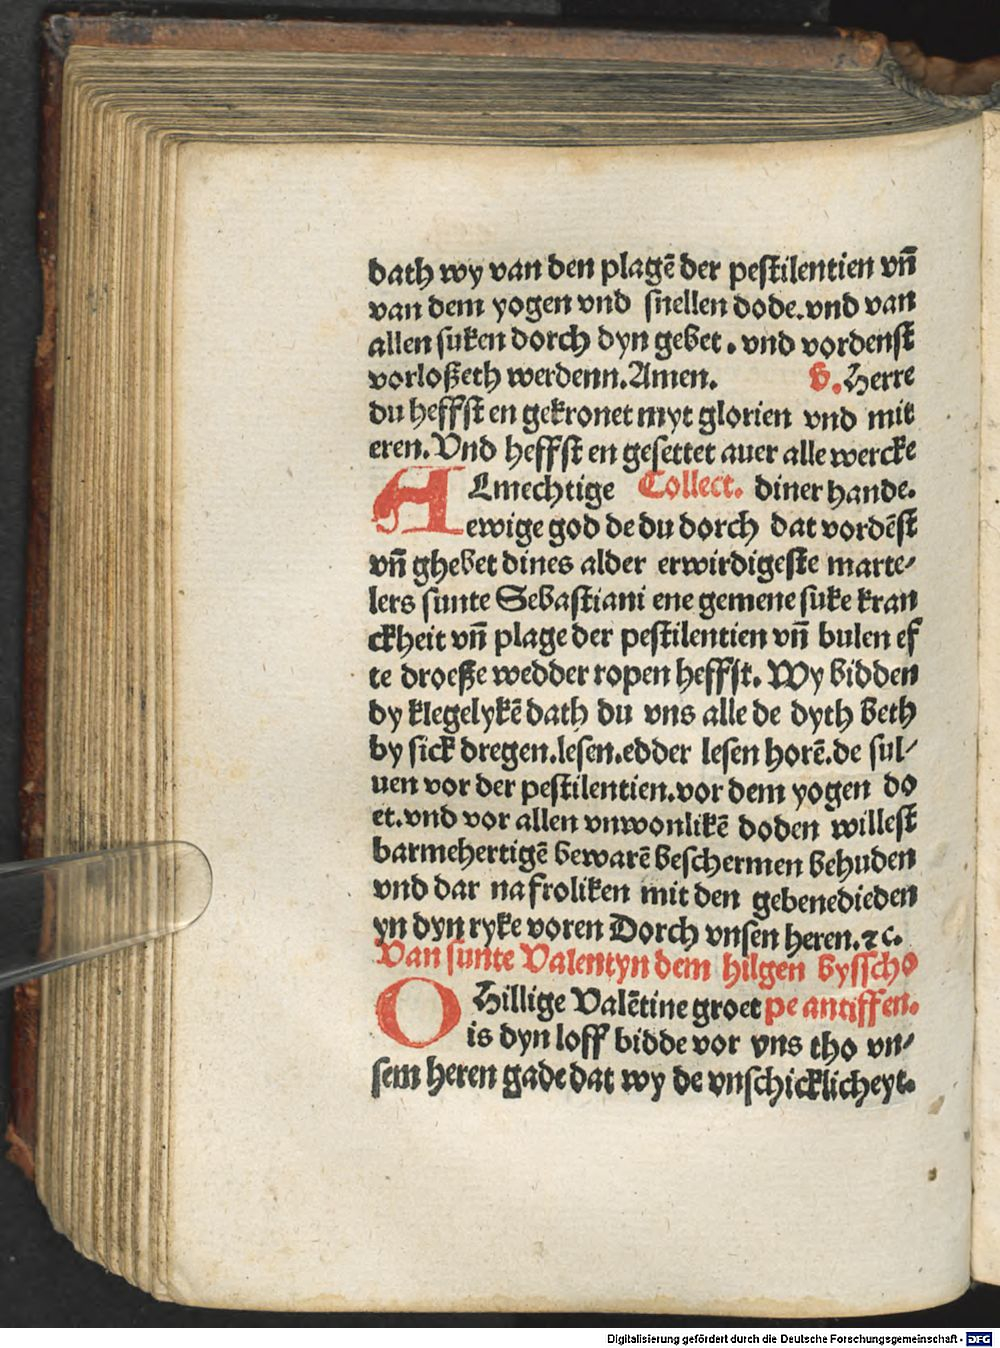 dath wy van den plagē der pestilentien vn̄
van dem yogen vnd snellen dode.vnd van
allen suken dorch dyn gebet. vnd vordenst
vorloßeth werdenn.Amen. V.Herre
du heffst en gekronet myt glorien vnd mit
eren.Vnd heffst en gesettet auer alle wercke
ALmechtige Collect. diner hande.
ewige god de du dorch dat vordēst
vn̄ ghebet dines alder erwirdigeste marte⸗
lers sunte Sebastiani ene gemene suke kran
ckheit vn̄ plage der pestilentien vn̄ bulen ef
te droeße wedder ropen heffst. Wy bidden
dy klegelykē dath du vns alle de dyth beth
by sick dregen.lesen.edder lesen horē.de sul⸗
uen vor der pestilentien.vor dem yogen do
et.vnd vor allen vnwonlikē doden willest
barmehertigē bewarē beschermen behuden
vnd dar na froliken mit den gebenedieden
yn dyn ryke voren Dorch vnsen heren.⁊c.
Van sunte Valentyn dem hilgen byscho
O Hillige Valētine groet pe antiffen.
is dyn loff bidde vor vns tho vn⸗
sem heren gade dat wy de vnschicklicheyt.
Digitalisierung gefördert durch die Deutsche Forschungsgemeinschaft - DFG